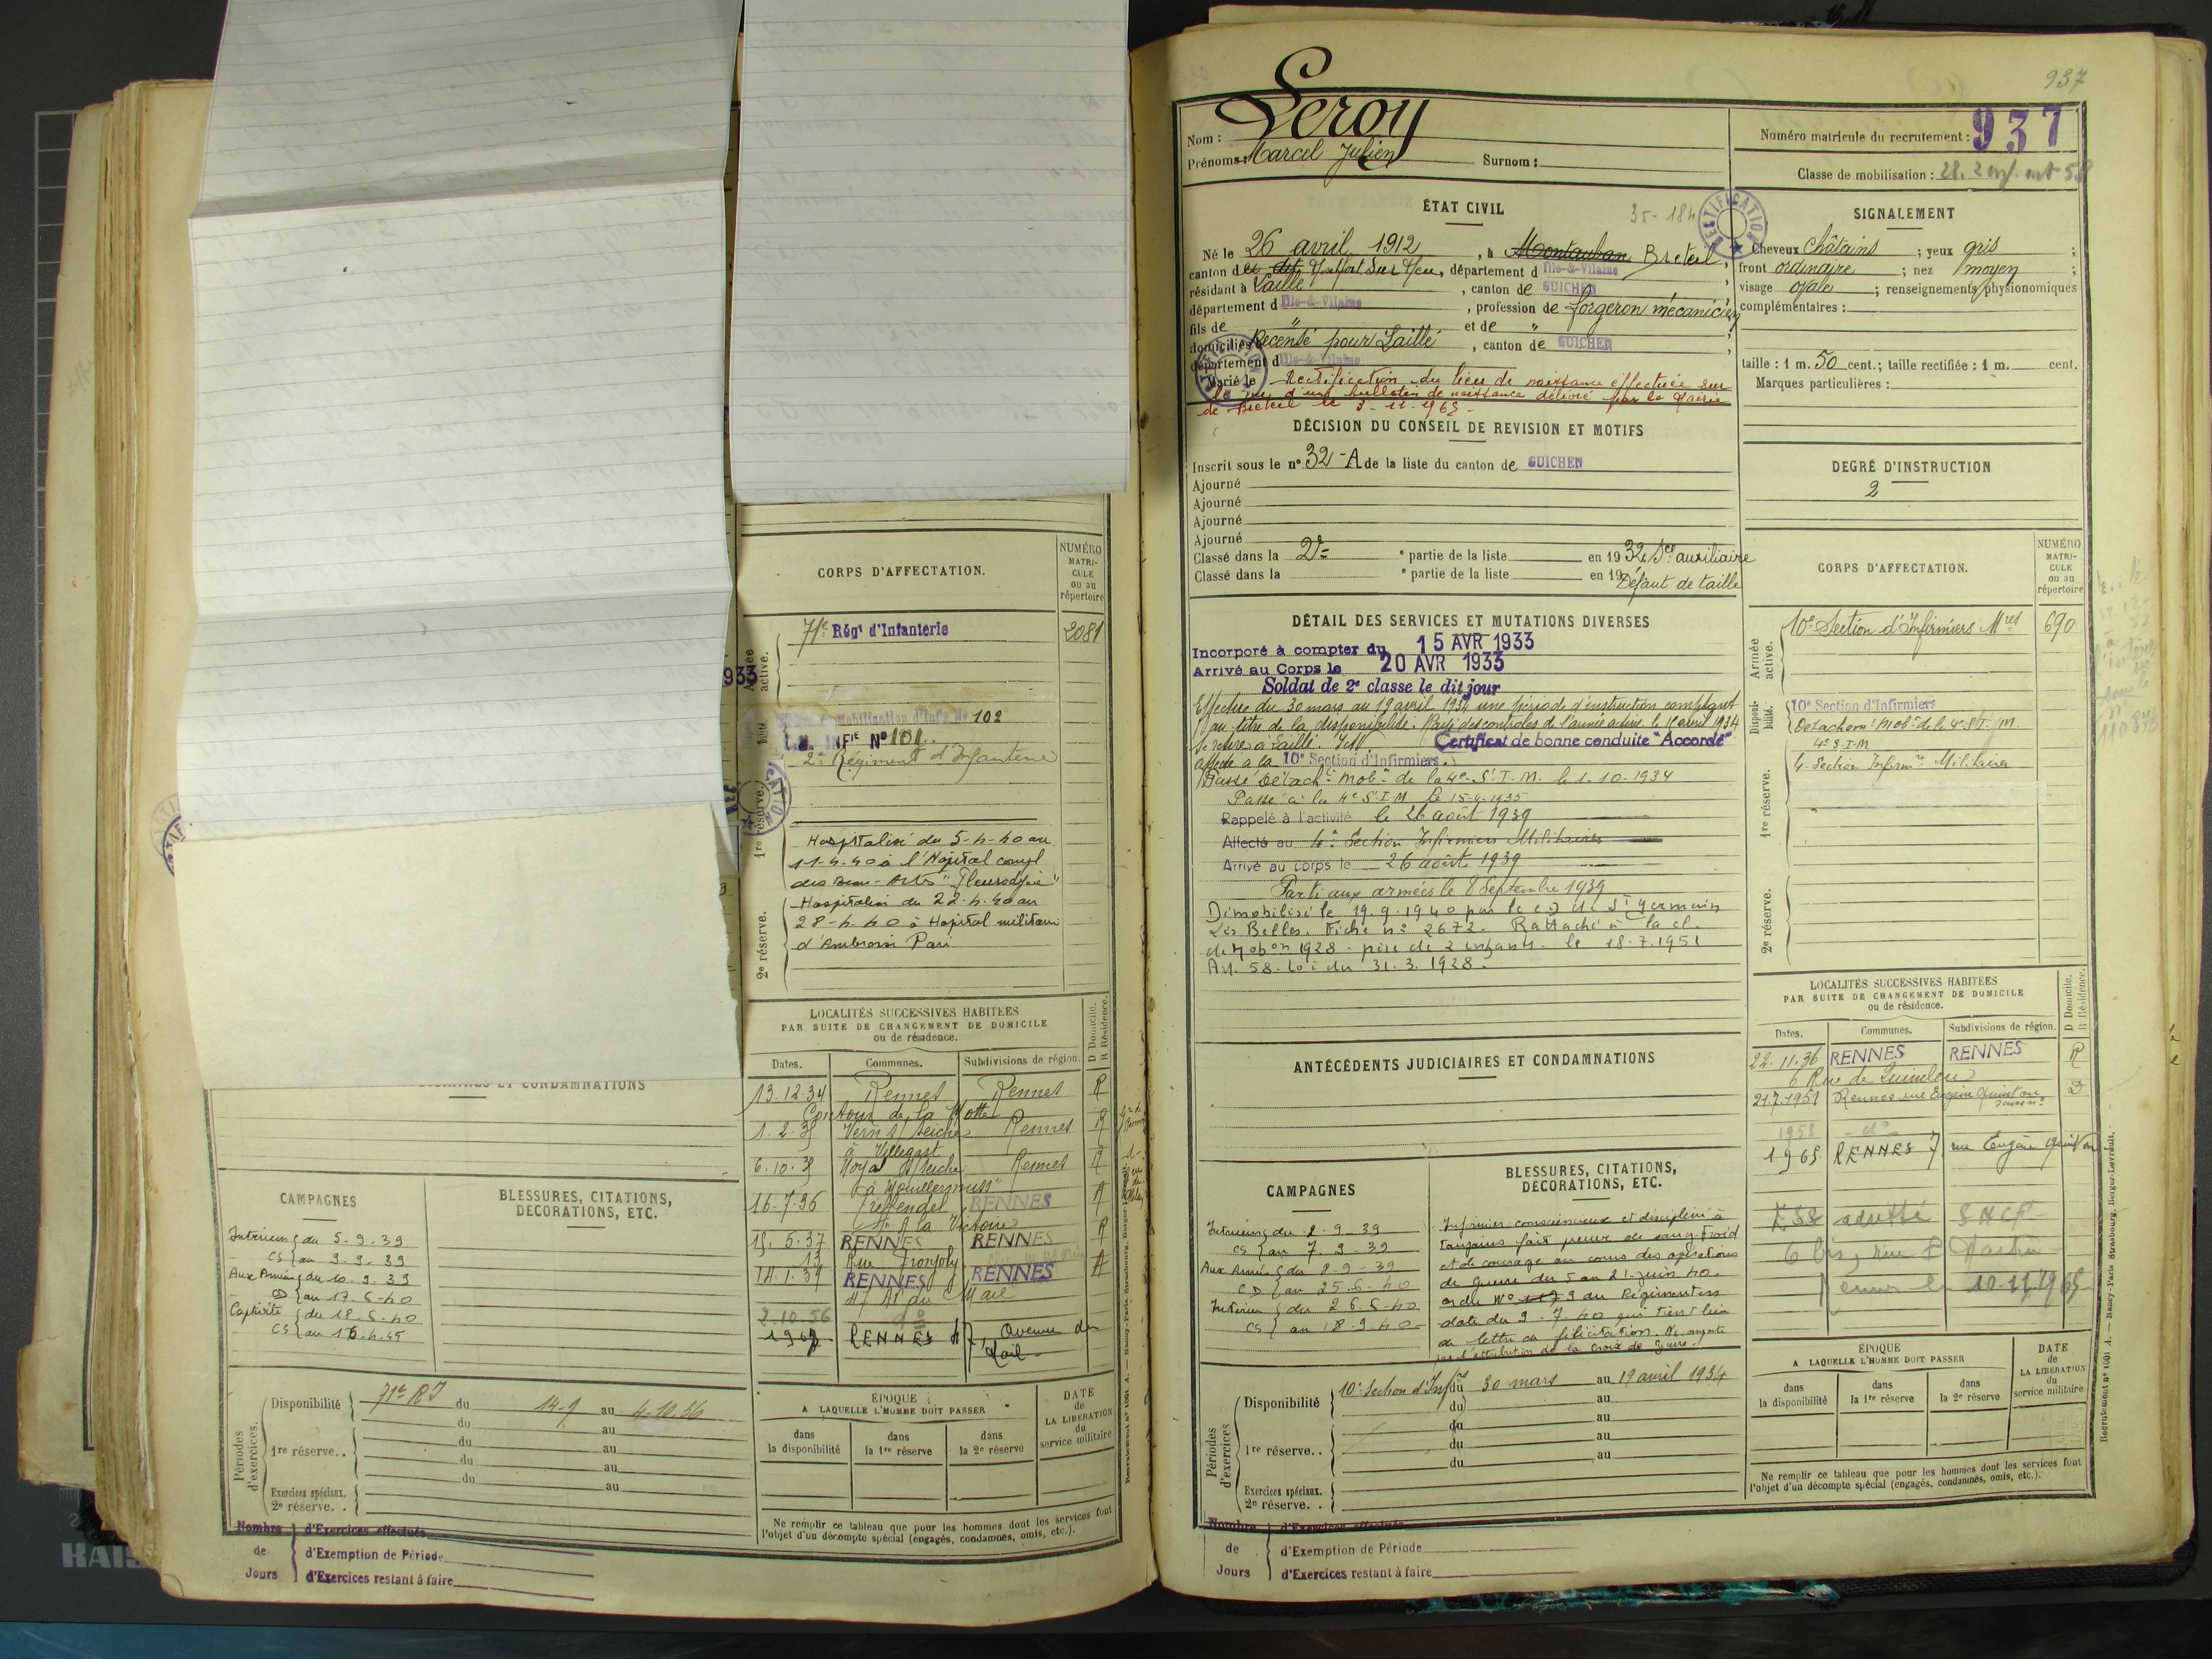 CORPS D'AFFECTATION.
NUMÉRO
MATRI-
CULE
ou au
répertoire
Armée active.
71e Régt d'Infanterie
2081
933
Mobilisation d'Infie No 102
INFIE No 101.
2e Régiment d'Infanterie
1re réserve.
Hospitalisé du 5-4-40 au
11-4-40 à l'Hôpital compl
des Beaux-Arts
Hospitalisé du 22-4-40 au
28-4-40 à Hopital militaire
d'Ambroise Paré
2e réserve.
LOCALITÉS SUCCESSIVES HABITÉES
PAR SUITE DE CHANGEMENT DE DOMICILE
ou de résidence.
D Domicile.
R Résidence.
Dates.
Communes.
Subdivisions de région.
13.12.34 Rennes Rennes R
Contour de la Motte
1.2.35 Vern s/ Seiche Rennes R
à Villegast
6.10.35 Noyal s/ Seiche Rennes R
16.7.36 Treffendel RENNES R
A la Victoire
15.5.37 RENNES RENNES R
13 Rue
14.1.39 RENNES RENNES R
47 Av. du Mail
2.10.56 do
RENNES 47, Avenue du
Mail
ET CONDAMNATIONS
CAMPAGNES
BLESSURES, CITATIONS,
DÉCORATIONS, ETC.
Intérieur du 5-9-39
CS au 9-9-39
Aux Armées du 10-9-39
CD au 17-6-40
Captivité du 18-6-40
CS au
Périodes d'exercices.
Disponibilité
71e RI du 14-9 au 4-10.36
du au
1re réserve..
du au
du au
du au
Exercices spéciaux.
2e réserve. .
ÉPOQUE
A LAQUELLE L'HOMME DOIT PASSER
dans
la disponibilité
dans
la 1re réserve
dans
la 2e réserve
DATE
de
LA LIBÉRATION
du
service militaire
Ne remplir ce tableau que pour les hommes dont les services font
l'objet d'un décompte spécial (engagés, condamnés, omis, etc.).
Nombre
de
Jours
d'Exercices effectués
d'Exemption de Période
d'Exercices restant à faire
937
Nom : Leroy
Prénoms : Marcel Julien
Surnom :
Numéro matricule du recrutement : 937
Classe de mobilisation : 28. 2 enf. art 58
ÉTAT CIVIL
35-184
RECTIFICATION
Né le 26 avril 1912, à Montauban Breteil,
canton de dit Montfort sur Meu, département d Ille-&-Vilaine
résidant à Laillé, canton de GUICHEN
département d Ille-&-Vilaine, profession de forgeron mécanicien
fils de " et de "
domiciliés Recensé pour Laillé, canton de GUICHEN
département d Ille-&-Vilaine
Marié le Rectification du lieu de naissance effectuée sur
le vu d'un bulletin de naissance délivré par la Mairie
de Breteil le 3-11-1965-
SIGNALEMENT
Cheveux châtains ; yeux gris ;
front ordinaire ; nez moyen ;
visage ovale ; renseignements physionomiques
complémentaires :
taille : 1 m. 50 cent.; taille rectifiée : 1 m. cent.
Marques particulières :
DÉCISION DU CONSEIL DE REVISION ET MOTIFS
Inscrit sous le no 32-A de la liste du canton de GUICHEN
Ajourné
Ajourné
Ajourné
Ajourné
Classé dans la 2e partie de la liste en 1932, Sce auxiliaire
Classé dans la e partie de la liste en 19 Défaut de taille
DEGRÉ D'INSTRUCTION
2
DÉTAIL DES SERVICES ET MUTATIONS DIVERSES
Incorporé à compter du 15 AVR 1933
Arrivé au Corps le 20 AVR 1933
Soldat de 2e classe le dit jour
Effectue du 30 mars au 19 avril 1934 une période d'instruction comptant
au titre de la disponibilité. Rayé des contrôles de l'armée active le 15 avril 1934
Se retire à Laillé. I&V. Certificat de bonne conduite "Accordé"
affecté à la 10e Section d'Infirmiers.
Passé Détacht Mobr de la 4e S.I.M. le 1.10-1934
Passé à la 4e S.I.M. le 15-4-1935
Rappelé à l'activité le 26 août 1939
Affecté au 4e Section Infirmiers Militaires
Arrivé au corps le 26 août 1939
Parti aux armées le 8 Septembre 1939
Démobilisé le 19.9.1940 par le CD de St Germain
Les Belles. Fiche no 2672. Rattaché à la cl.
de Mobon 1928 - père de 2 enfants - le 18.7.1951
Art. 58. Loi du 31.3.1928.
CORPS D'AFFECTATION.
NUMÉRO
MATRI-
CULE
ou au
répertoire
Armée active.
10e Section d'Infirmiers Mres
690
Disponi-
bilité.
10e Section d'Infirmiers
Détachemt Mobr de la 4e S.I.M.
4e S.I.M
1re réserve.
4e Section Infirmrs Militaires
2e réserve.
LOCALITÉS SUCCESSIVES HABITÉES
PAR SUITE DE CHANGEMENT DE DOMICILE
ou de résidence.
D Domicile.
R Résidence.
Dates.
Communes.
Subdivisions de région.
22.11.36 RENNES RENNES R
6 Rue de
21.7.1951 Rennes rue Eugène Quinton D
sans no
1953 - do -
1965 RENNES 7 rue Eugène Quinton
ESS adressé SNCF
6 bis, rue P. Martin
Rennes le 10-11-1965
ANTÉCÉDENTS JUDICIAIRES ET CONDAMNATIONS
CAMPAGNES
Intérieur du 2-9-39
CS au 7.9-39
Aux Armées du 8-9-39
CD au 25-6-40
Intérieur du 26-6-40
CS au 18.9.40
BLESSURES, CITATIONS,
DÉCORATIONS, ETC.
Infirmier consciencieux et discipliné à
toujours fait preuve de sang-froid
et de courage au cours des opérations
de guerre du 5 au 21 juin 40.
ordre No 9 du Régiment en
date du 9.7.40 qui tient lieu
de lettre de félicitation. Ne comporte
pas l'attribution de la croix de guerre.
Périodes d'exercices
Disponibilité
10e Section d'Infrs du 30 mars au 19 avril 1934
du au
1re réserve..
du au
du au
du au
Exercices spéciaux.
2e réserve. .
ÉPOQUE
A LAQUELLE L'HOMME DOIT PASSER
dans
la disponibilité
dans
la 1re réserve
dans
la 2e réserve
DATE
de
LA LIBÉRATION
du
service militaire
Ne remplir ce tableau que pour les hommes dont les services font
l'objet d'un décompte spécial (engagés, condamnés, omis, etc.).
Nombre
de
Jours
d'Exercices effectués
d'Exemption de Période
d'Exercices restant à faire
Recrutement no 1001 A. — Nancy-Paris-Strasbourg, Berger-Levrault.